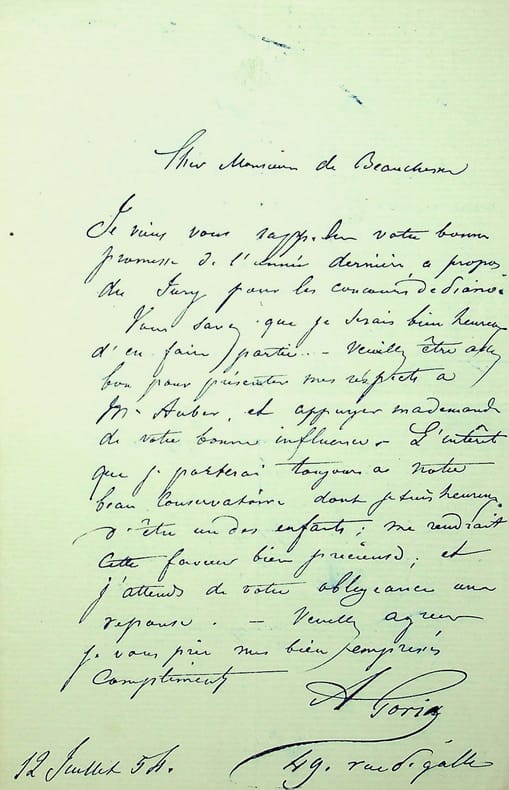 Cher Monsieur de Beauchesne
Je viens vous rappeler votre bonne
promesse de l'année dernière, a propos
du Jury pour les concours de piano.
Vous savez que je serais bien heureux
d'en faire partie. - Veuillez être assez
bon pour présenter mes respects a
Mr Auber, et appuyer ma demande
de votre bonne influence. L'intérêt
que je porterai toujours a notre
beau Conservatoire dont je suis heureux
d'être un des enfants; me rendrait
cette faveur bien précieuse; et
j'attends de votre obligeance une
reponse. - Veuillez agréer
je vous prie mes bien empressés
Compliments
A Goria
12 Juillet 54. 49. rue Pigalle